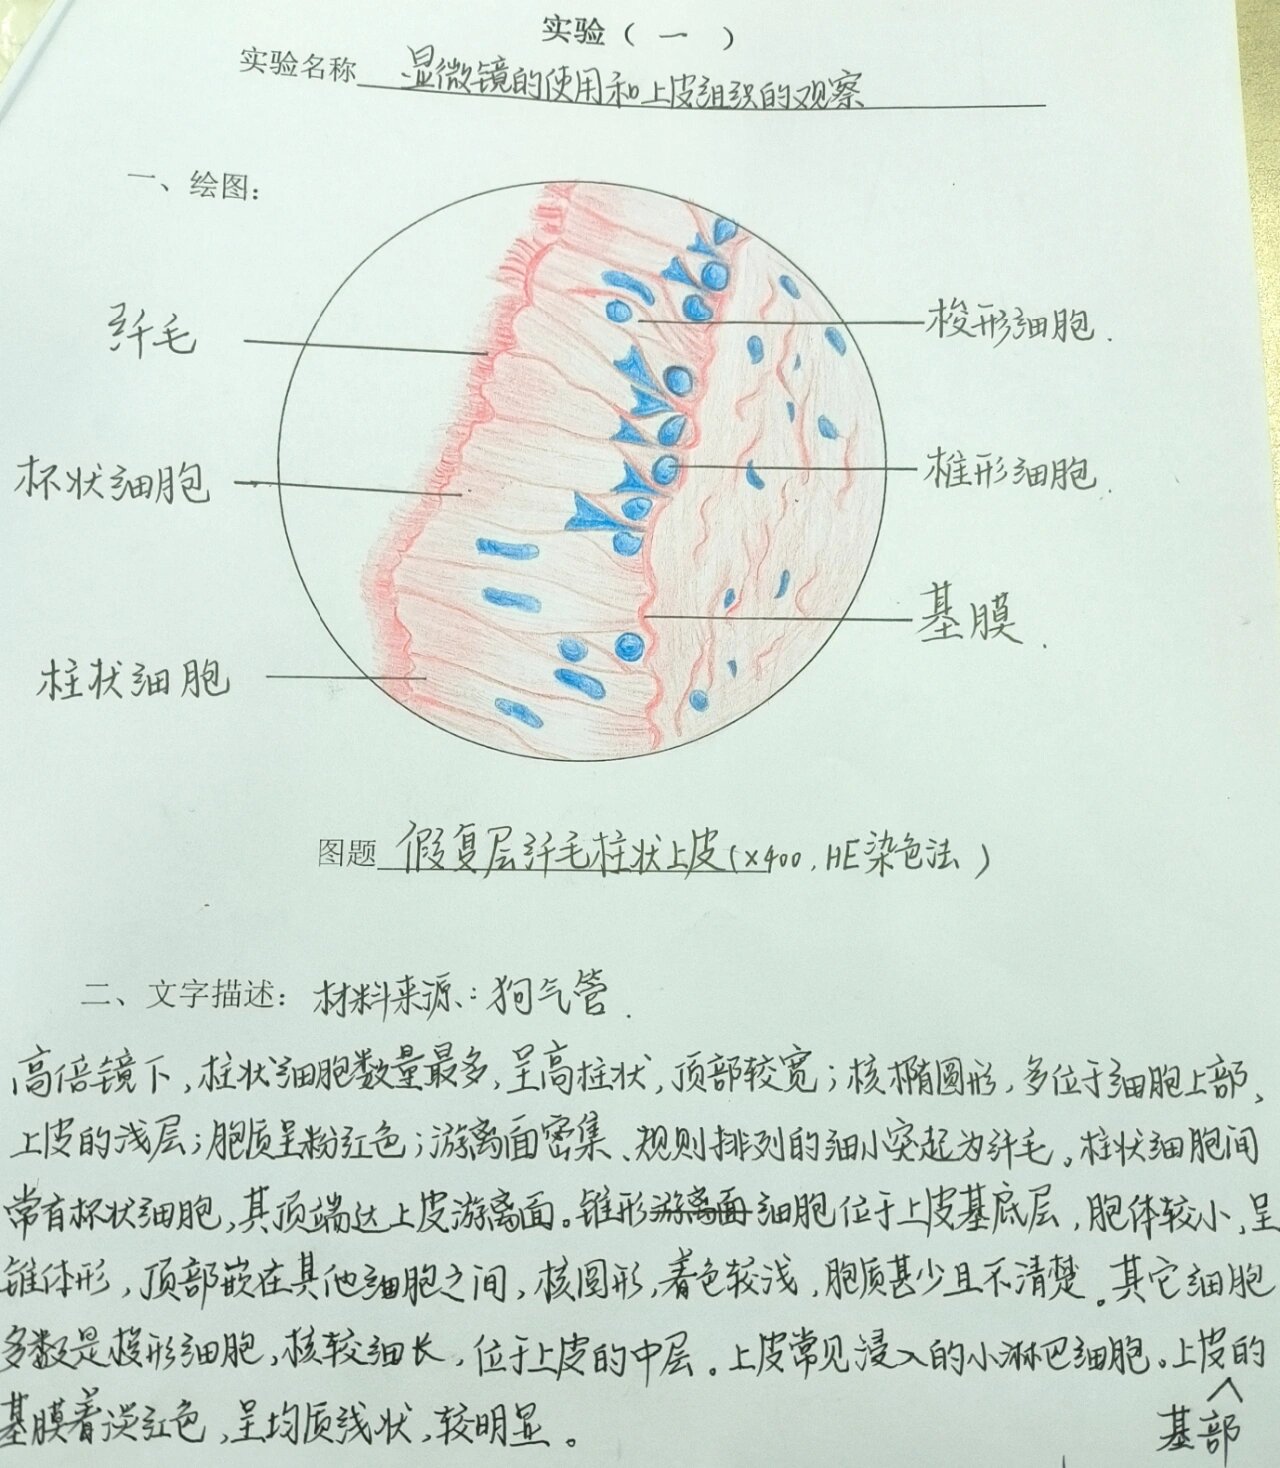 实验（ 一 ）
实验名称 显微镜的使用和上皮组织的观察
一、绘图：
纤毛
杯状细胞
柱状细胞
梭形细胞.
椎形细胞.
基膜.
图题 假复层纤毛柱状上皮(×400,HE染色法)
二、文字描述：材料来源：狗气管.
高倍镜下,柱状细胞数量最多,呈高柱状,顶部较宽;核椭圆形,多位于细胞上部、
上皮的浅层;胞质呈粉红色;游离面密集、规则排列的细小突起为纤毛。柱状细胞间
常有杯状细胞,其顶端达上皮游离面。锥形游离面细胞位于上皮基底层,胞体较小,呈
锥体形,顶部嵌在其他细胞之间,核圆形,着色较浅,胞质甚少且不清楚。其它细胞
多数是梭形细胞,核较细长,位于上皮的中层。上皮常见浸入的小淋巴细胞。上皮的
基部
基膜着淡红色,呈均质线状,较明显。